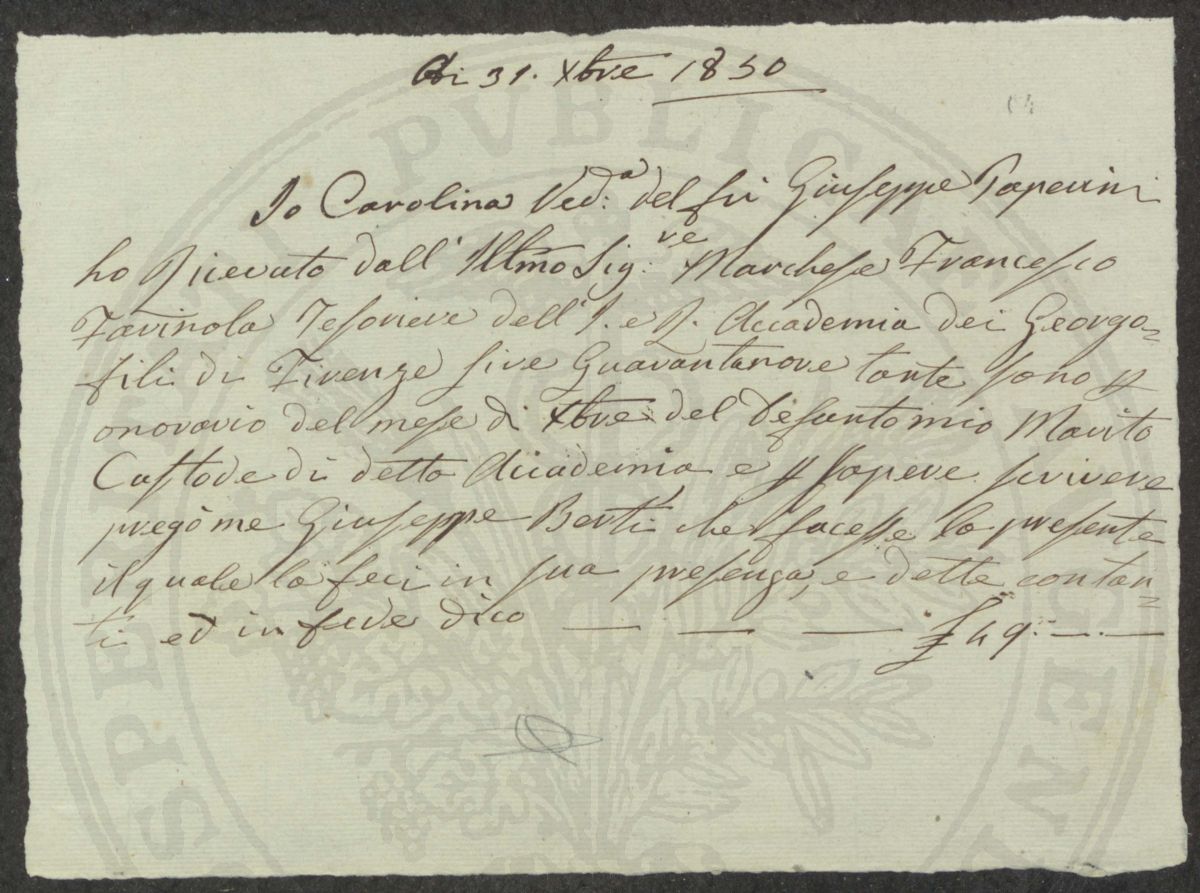 Adi 31. Xbre 1830
64
Io Carolina Ved.a del fù Giuseppe Paperini
ho Ricevuto dall' Illmo Sig.re Marchese Francesco
Farinola Tesoriere dell' I. e R. Accademia dei Georgo=
fili di Firenze Lire Quarantanove tante sono p
onorario del mese di Xbre del Defunto mio Marito
Custode di detta Accademia, e p sapere scrivere
pregò me Giuseppe Berti che facesse la presente
il quale la feci in sua presenza, e dette contan=
ti ed in fede dico — — — £ 49. — . —